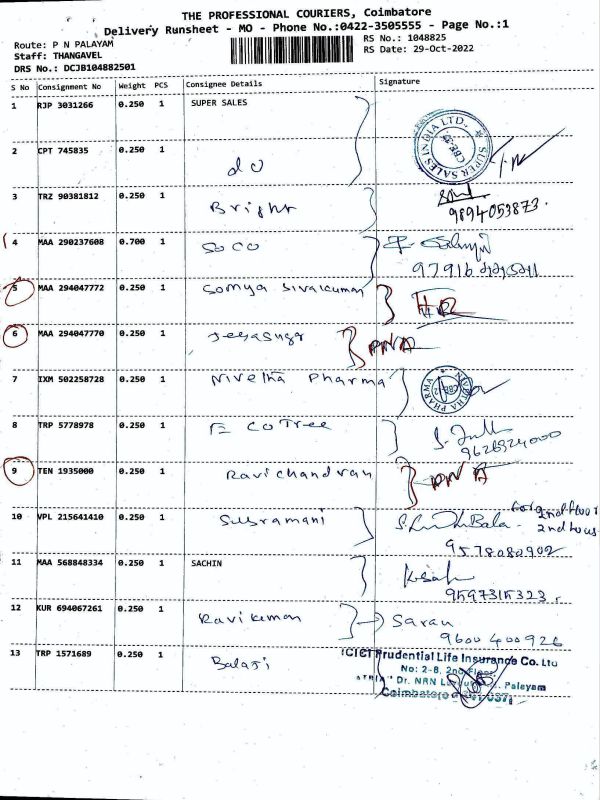 THE PROFESSIONAL COURIERS, Coimbatore
Delivery Runsheet - MO - Phone No.:0422-3505555 - Page No.:1
Route: P N PALAYAM
RS No.: 1048825
Staff: THANGAVEL
RS Date: 29-Oct-2022
DRS No.: DCJB104882501
S No Consignment No Weight PCS Consignee Details Signature
1 RJP 3031266 0.250 1 SUPER SALES
SUPER SALES INDIA LTD.
2 CPT 745835 0.250 1 do
3 TRZ 90381812 0.250 1 Bright
9894053873.
4 MAA 290237608 0.700 1 SOCO
5 MAA 294047772 0.250 1 Somya Sivalkuman
6 MAA 294047770 0.250 1 PNA
7 IXM 502258728 0.250 1 Nivetha Pharma
NIVETHA PHARMA
8 TRP 5778978 0.250 1 E COTree
9 TEN 1935000 0.250 1 Ravichandran PNA
10 VPL 215641410 0.250 1 Subramani
2nd floor
9578080902
11 MAA 568848334 0.250 1 SACHIN
9597315323.
12 KUR 694067261 0.250 1 Ravi kuman Saran
9600 400926
13 TRP 1571689 0.250 1 Balaji
ICICI Prudential Life Insurance Co. Ltd
No: 2-8, 2nd Floor,
Dr. NRN Palayam
Coimbatore